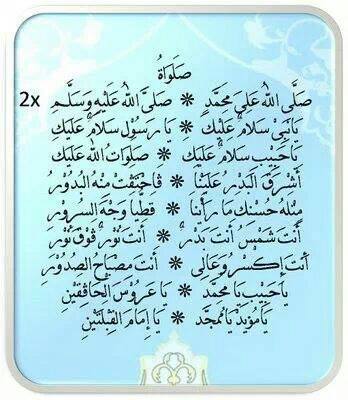 صَلَوَاةُ
2x صَلَّى اللهُ عَلَى مُحَمَّدٍ ❋ صَلَّى اللهُ عَلَيْهِ وَسَلَّمَ
يَانَبِى سَلَامٌ عَلَيْكَ ❋ يَا رَسُوْلْ سَلَامٌ عَلَيْكَ
يَاحَبِيبْ سَلَامٌ عَلَيْكَ ❋ صَلَوَاتُ اللهْ عَلَيْكَ
أَشْرَقَ الْبَدْرُ عَلَيْنَا ❋ فَاخْتَفَتْ مِنْهُ الْبُدُوْرُ
مِثْلَ حُسْنِكْ مَا رَأَيْنَا ❋ قَطُّ يَا وَجْهَ السُّرُوْرِ
أَنْتَ شَمْسٌ أَنْتَ بَدْرٌ ❋ أَنْتَ نُوْرٌ فَوْقَ نُوْرٍ
أَنْتَ إِكْسِرُ وَغَالِى ❋ أَنْتَ مِصْبَاحُ الصُّدُوْرِ
يَاحَبِيْبِ يَا مُحَمَّدْ ❋ يَا عَرُوْسَ الْخَافِقَيْنِ
يَا مُؤَيَّدْ يَا مُمَجَّدْ ❋ يَا إِمَامَ الْقِبْلَتَيْنِ